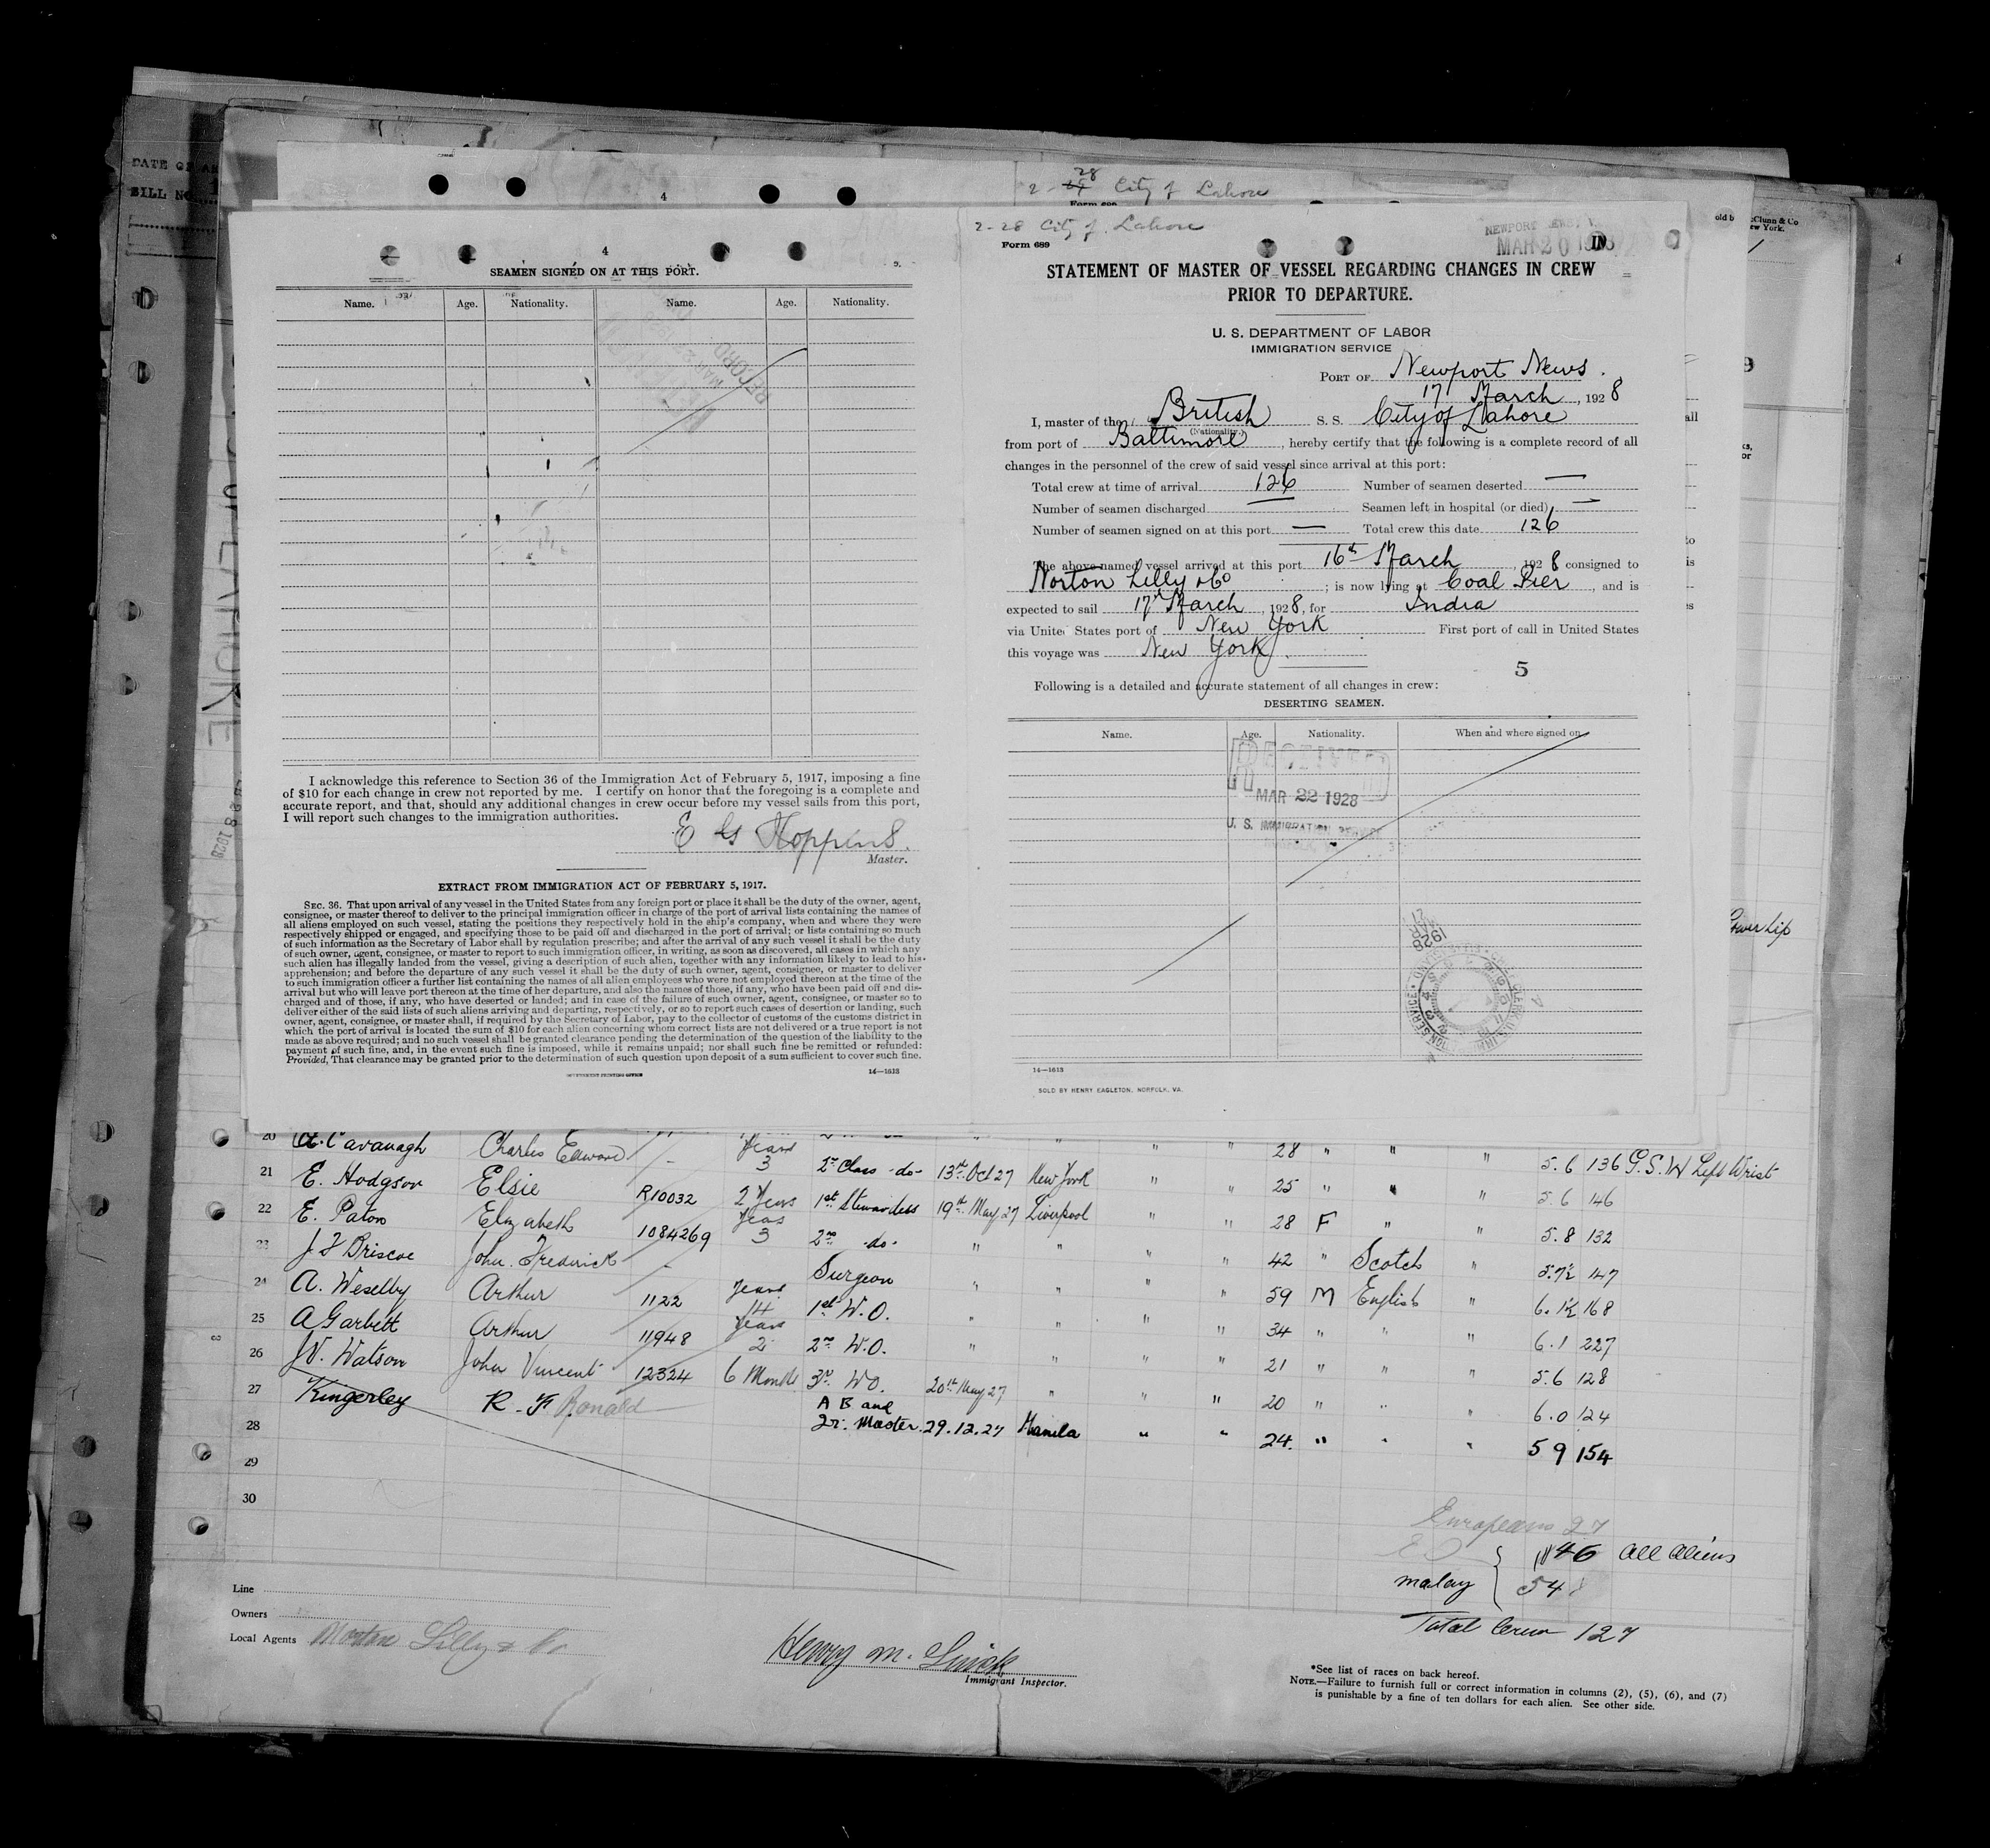 DATE OF AR
BILL NO. 1
4
2-28 City of Lahore
Form 689
4
SEAMEN SIGNED ON AT THIS PORT.
Name. Age. Nationality. Name. Age. Nationality.
RECORD
I acknowledge this reference to Section 36 of the Immigration Act of February 5, 1917, imposing a fine
of $10 for each change in crew not reported by me. I certify on honor that the foregoing is a complete and
accurate report, and that, should any additional changes in crew occur before my vessel sails from this port,
I will report such changes to the immigration authorities.
E G Hoppins.
Master.
EXTRACT FROM IMMIGRATION ACT OF FEBRUARY 5, 1917.
SEC. 36. That upon arrival of any vessel in the United States from any foreign port or place it shall be the duty of the owner, agent,
consignee, or master thereof to deliver to the principal immigration officer in charge of the port of arrival lists containing the names of
all aliens employed on such vessel, stating the positions they respectively hold in the ship's company, when and where they were
respectively shipped or engaged, and specifying those to be paid off and discharged in the port of arrival; or lists containing so much
of such information as the Secretary of Labor shall by regulation prescribe; and after the arrival of any such vessel it shall be the duty
of such owner, agent, consignee, or master to report to such immigration officer, in writing, as soon as discovered, all cases in which any
such alien has illegally landed from the vessel, giving a description of such alien, together with any information likely to lead to his
apprehension; and before the departure of any such vessel it shall be the duty of such owner, agent, consignee, or master to deliver
to such immigration officer a further list containing the names of all alien employees who were not employed thereon at the time of the
arrival but who will leave port thereon at the time of her departure, and also the names of those, if any, who have been paid off and dis-
charged and of those, if any, who have deserted or landed; and in case of the failure of such owner, agent, consignee, or master so to
deliver either of the said lists of such aliens arriving and departing, respectively, or so to report such cases of desertion or landing, such
owner, agent, consignee, or master shall, if required by the Secretary of Labor, pay to the collector of customs of the customs district in
which the port of arrival is located the sum of $10 for each alien concerning whom correct lists are not delivered or a true report is not
made as above required; and no such vessel shall be granted clearance pending the determination of the question of the liability to the
payment of such fine, and, in the event such fine is imposed, while it remains unpaid; nor shall such fine be remitted or refunded:
Provided, That clearance may be granted prior to the determination of such question upon deposit of a sum sufficient to cover such fine.
GOVERNMENT PRINTING OFFICE 14—1613
2-28 City of Lahore
Form 689
NEWPORT NEWS, V
MAR 20 1928
IN
STATEMENT OF MASTER OF VESSEL REGARDING CHANGES IN CREW
PRIOR TO DEPARTURE.
U. S. DEPARTMENT OF LABOR
IMMIGRATION SERVICE
PORT OF Newport News.
17 March, 1928
I, master of the British S. S. City of Lahore
(Nationality.)
from port of Baltimore, hereby certify that the following is a complete record of all
changes in the personnel of the crew of said vessel since arrival at this port:
Total crew at time of arrival 126 Number of seamen deserted —
Number of seamen discharged — Seamen left in hospital (or died) —
Number of seamen signed on at this port — Total crew this date 126
The above-named vessel arrived at this port 16th March, 1928 consigned to
Norton Lilly & Co; is now lying at Coal Pier, and is
expected to sail 17th March, 1928, for India
via United States port of New York First port of call in United States
this voyage was New York.
5
Following is a detailed and accurate statement of all changes in crew:
DESERTING SEAMEN.
Name. Age. Nationality. When and where signed on.
RECEIVED
MAR 22 1928
U. S. IMMIGRATION SERVICE
17
MAR
1928
14—1613
SOLD BY HENRY EAGLETON, NORFOLK, VA.
old b McClunn & Co
New York.
Lower Lip
20 A. Cavanagh Charles Edward - Years 3 2nd Class -do- 13th Oct 27 New York " " 28 " " " 5.6 136 G.S.W Left Wrist
21 E. Hodgson Elsie R10032 2 Years 1st Stewardess 19th May 27 Liverpool " " 25 " " " 5.6 146
22 E. Paton Elizabeth 1084269 Years 3 2nd -do- " " " " 28 F " " 5.8 132
23 J F Briscoe John Frederick - Surgeon " " " " 42 " Scotch " 5.7½ 147
24 A. Weselby Arthur 1122 Years 14 1st W.O. " " " " 59 M English " 6.1½ 168
25 A Garbett Arthur 11948 Years 2 2nd W.O. " " " " 34 " " " 6.1 227
26 J.V. Watson John Vincent 12324 6 Months 3rd W.O. 20th May 27 " " " 21 " " " 5.6 128
27 Kingerley R. F Ronald A B and 20 " " " 6.0 124
28 Qr. Master. 29.12.27 Manila " " 24. " " " 5 9 154
29
30
Europeans 27
46 All Aliens
malay 54
Total Crew 127
Line
Owners
Local Agents Norton Lilly & Co
Henry M. Smick
Immigrant Inspector.
*See list of races on back hereof.
NOTE.—Failure to furnish full or correct information in columns (2), (5), (6), and (7)
is punishable by a fine of ten dollars for each alien. See other side.